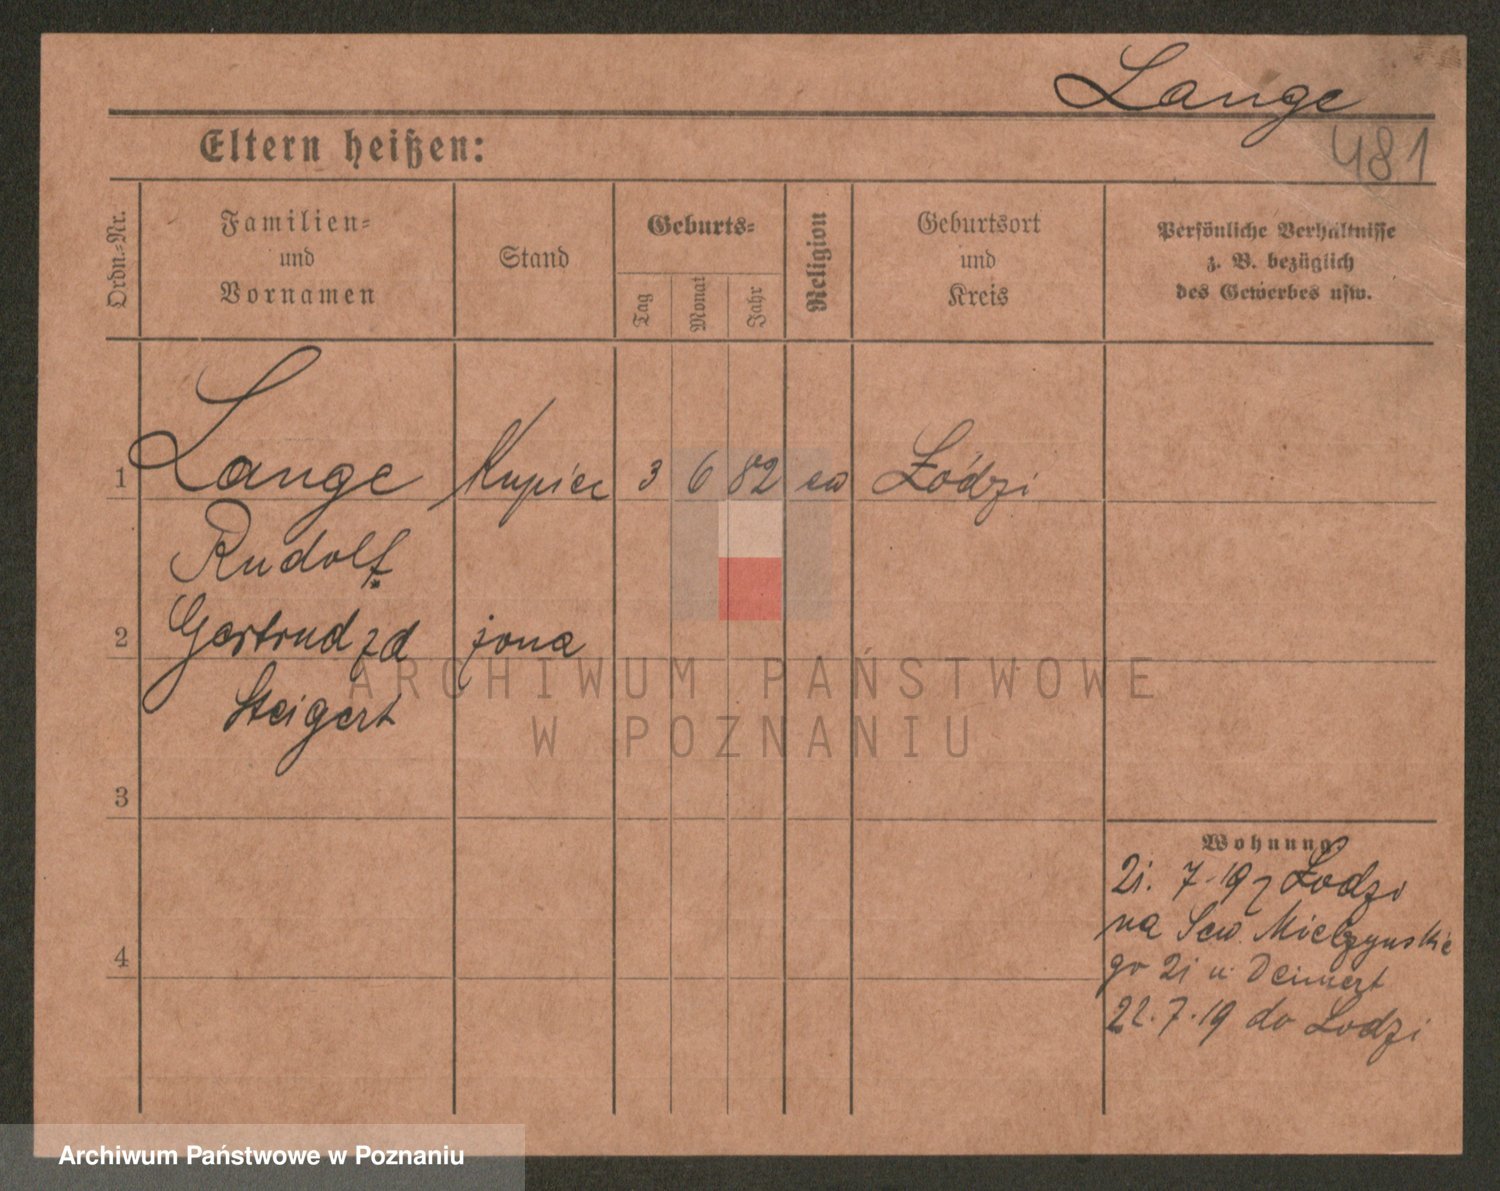 Lange
481
Eltern heißen:
Ordn.-Nr.
Familien-
und
Vornamen
Stand
Geburts-
Tag
Monat
Jahr
Religion
Geburtsort
und
Kreis
Persönliche Verhältnisse
z. B. bezüglich
des Gewerbes usw.
1 Lange Kupiec 3 6 82 ew Łódzi
Rudolf
2 Gertrud zd żona
Steigert
3
4
Wohnung
21. 7. 19 z Łodzi
na Sew. Mielzynskie
go 21 u Deinert
22. 7. 19 do Lodzi
ARCHIWUM PAŃSTWOWE
W POZNANIU
Archiwum Państwowe w Poznaniu